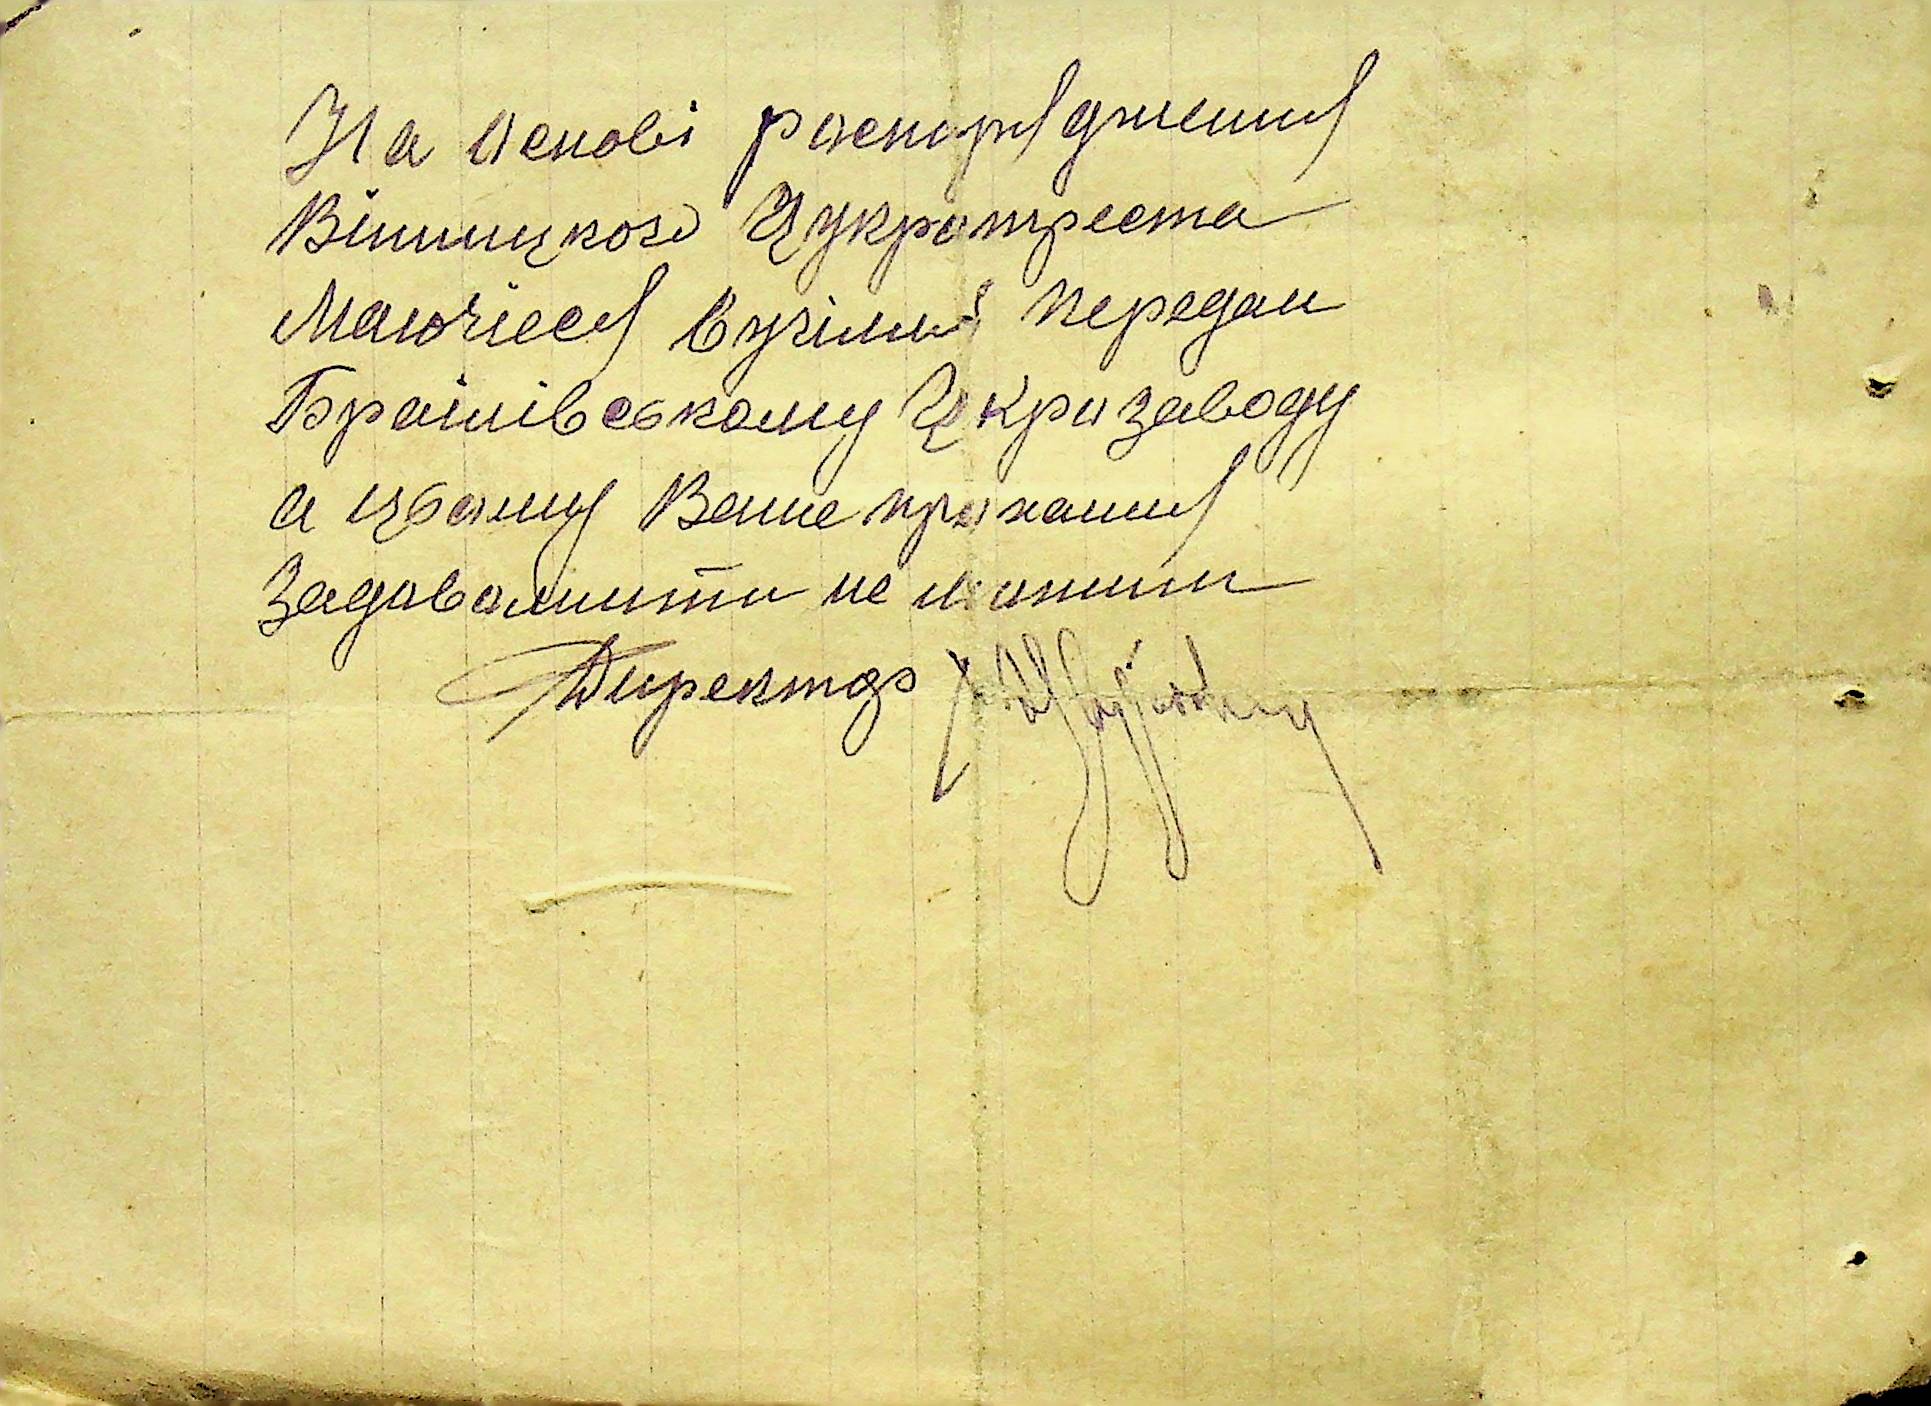 На основі распорядження
Вінницкого Цукротреста
Маючієся вугілля передали
Браїлівському Цукрозаводу
а цьому Ваше прохання
Задоволнити не можим
Директор